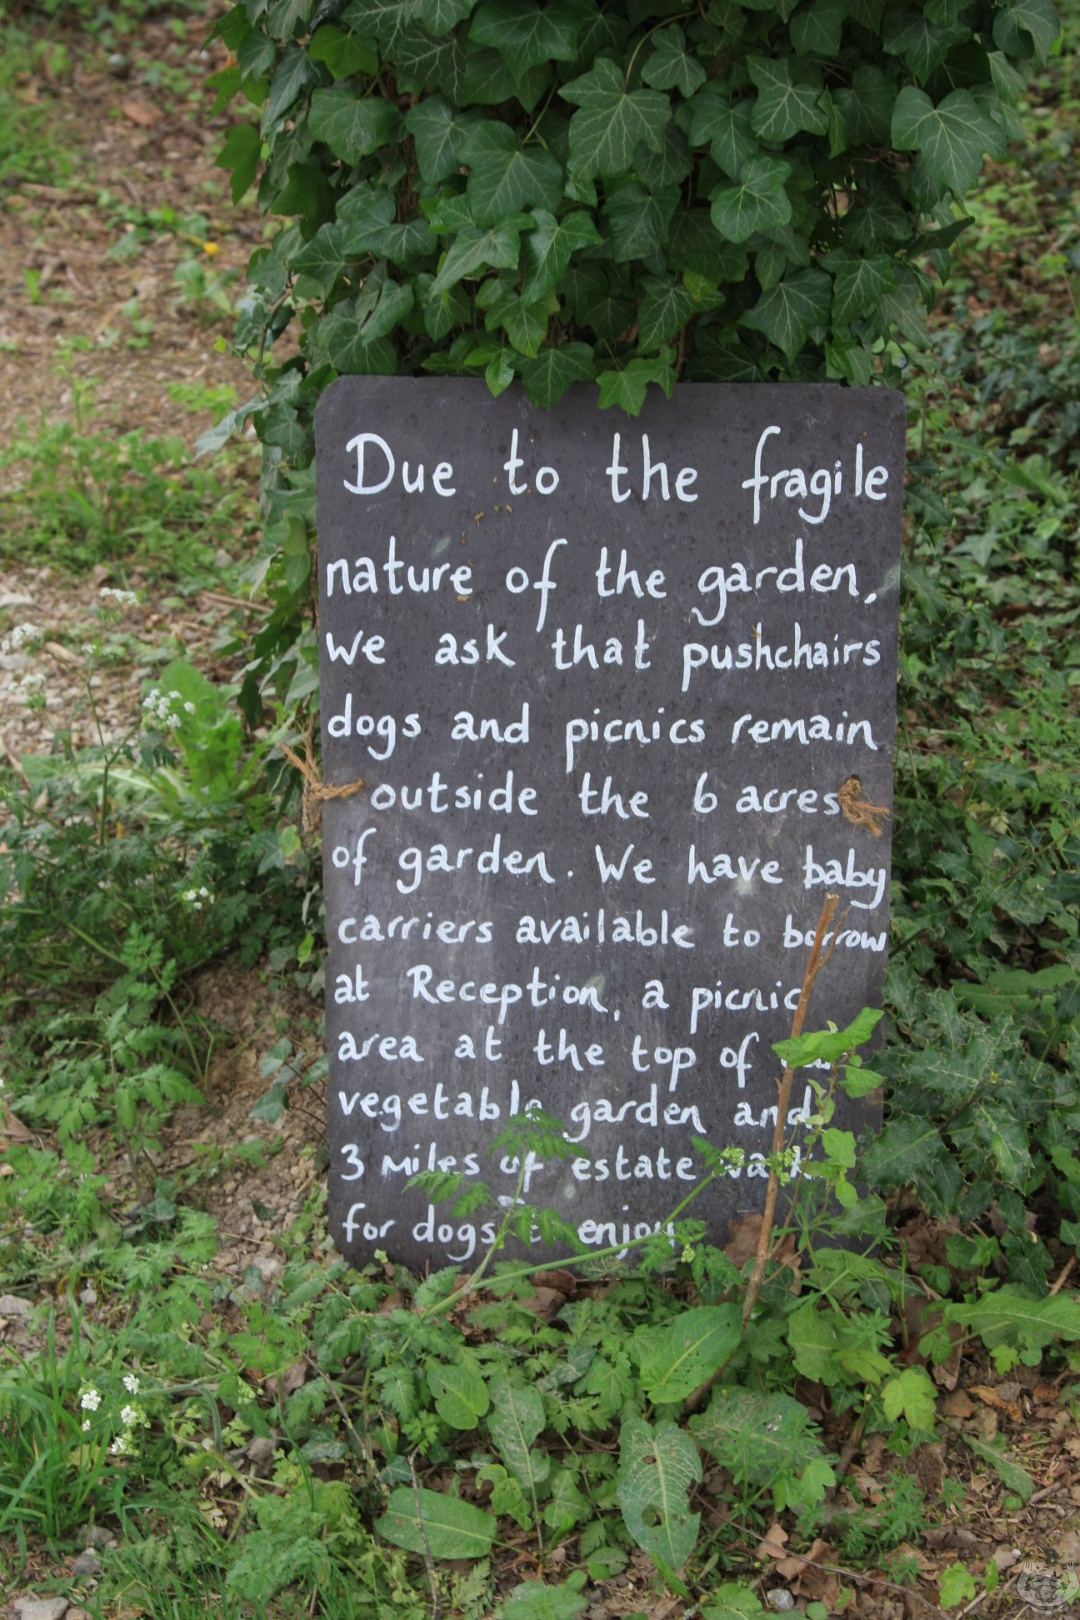 Due to the fragile
nature of the garden,
we ask that pushchairs
dogs and picnics remain
outside the 6 acres
of garden. We have baby
carriers available to borrow
at Reception, a picnic
area at the top of
vegetable garden and
3 miles of estate walk
for dogs to enjoy